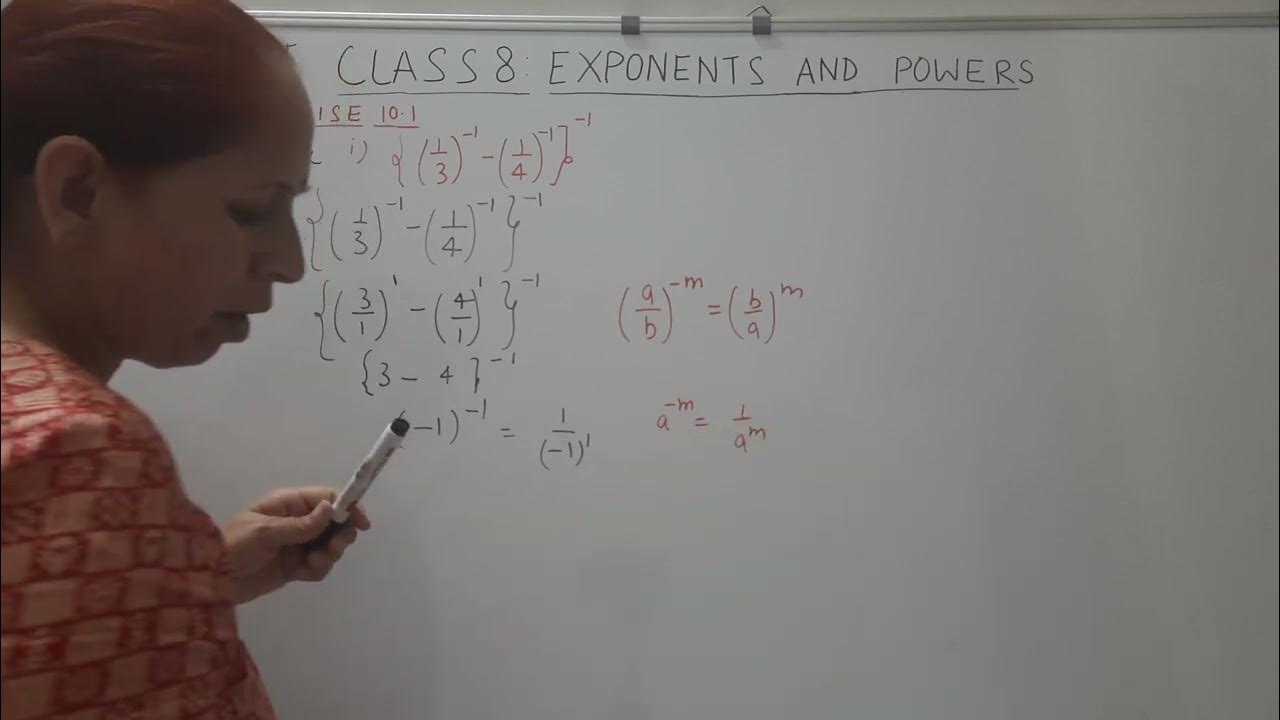 CLASS 8: EXPONENTS AND POWERS
ISE 10.1
i) {(1/3)^-1 - (1/4)^-1}^-1
{(1/3)^-1 - (1/4)^-1}^-1
{(3/1)^1 - (4/1)^1}^-1 (a/b)^-m = (b/a)^m
{3 - 4}^-1
(-1)^-1 = 1/(-1)^1 a^-m = 1/a^m